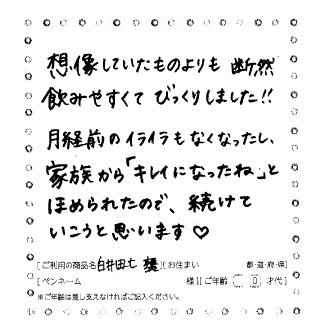 想像していたものよりも 断然
飲みやすくて びっくりしました!!
月経前のイライラもなくなったし、
家族から「キレイになったね」と
ほめられたので、続けて
いこうと思います♡
[ご利用の商品名 ][お住まい 都・道・府・県]
[ペンネーム 様][ご年齢 0 才代]
※ご年齢は差し支えなければご記入ください。